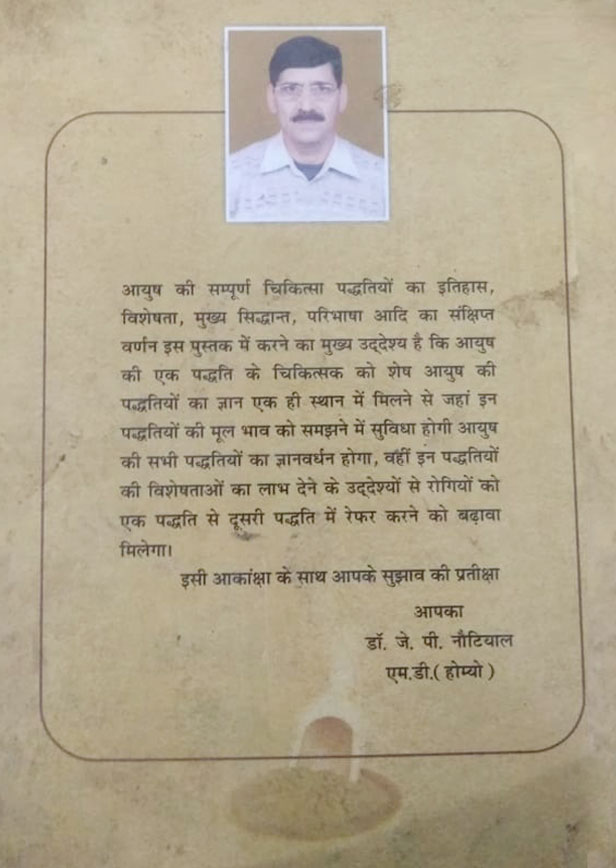 आयुष की सम्पूर्ण चिकित्सा पद्धतियों का इतिहास,
विशेषता, मुख्य सिद्धान्त, परिभाषा आदि का संक्षिप्त
वर्णन इस पुस्तक में करने का मुख्य उद्‌देश्य है कि आयुष
की एक पद्धति के चिकित्सक को शेष आयुष की
पद्धतियों का ज्ञान एक ही स्थान में मिलने से जहां इन
पद्धतियों की मूल भाव को समझने में सुविधा होगी आयुष
की सभी पद्धतियों का ज्ञानवर्धन होगा, वहीं इन पद्धतियों
की विशेषताओं का लाभ देने के उद्‌देश्यों से रोगियों को
एक पद्धति से दूसरी पद्धति में रेफर करने को बढ़ावा
मिलेगा।
इसी आकांक्षा के साथ आपके सुझाव की प्रतीक्षा
आपका
डॉ. जे. पी. नौटियाल
एम.डी.( होम्यो )